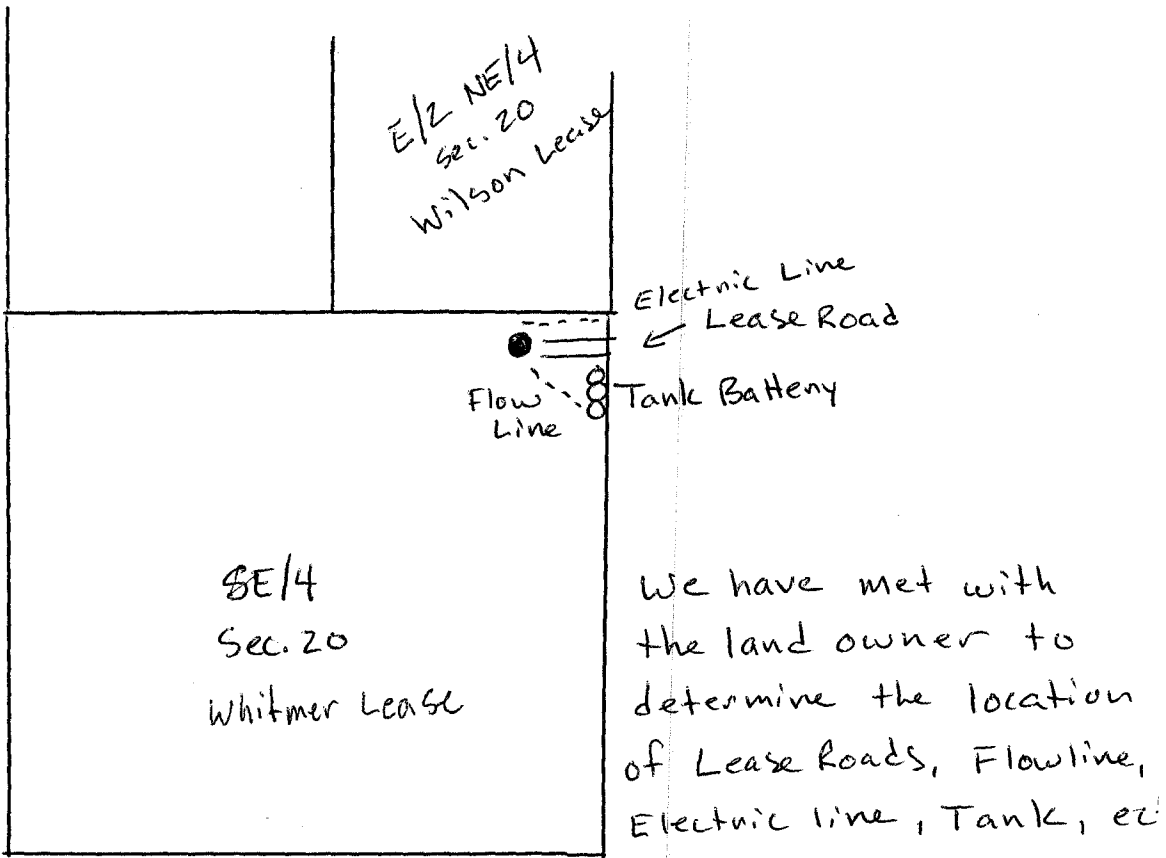 E/2 NE/4
Sec. 20
Wilson Lease
Electric Line
Lease Road
Flow
Line
Tank Battery
SE/4
Sec. 20
Whitmer Lease
We have met with
the land owner to
determine the location
of Lease Roads, Flowline,
Electric line, Tank,